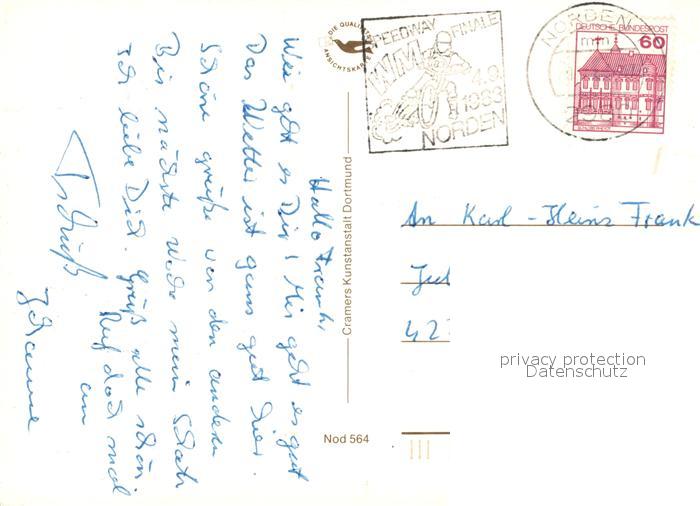 Hallo Frank,
Wie geht es Dir? Mir geht es gut
Das Wetter ist ganz gut hier.
Schöne grüße von den andern
Bis nächste Woche mein Schatz
Ich liebe Dich. Grüß alle schön.
Ruf doch mal
an
Tschüß
DIE QUALITÄTS
ANSICHTSKARTE
Cramers Kunstanstalt Dortmund
Nod 564
SPEEDWAY FINALE
WM
4.9.
1983
NORDEN
NORDEN
DEUTSCHE BUNDESPOST
60
An Karl-Heinz Frank
42
privacy protection
Datenschutz